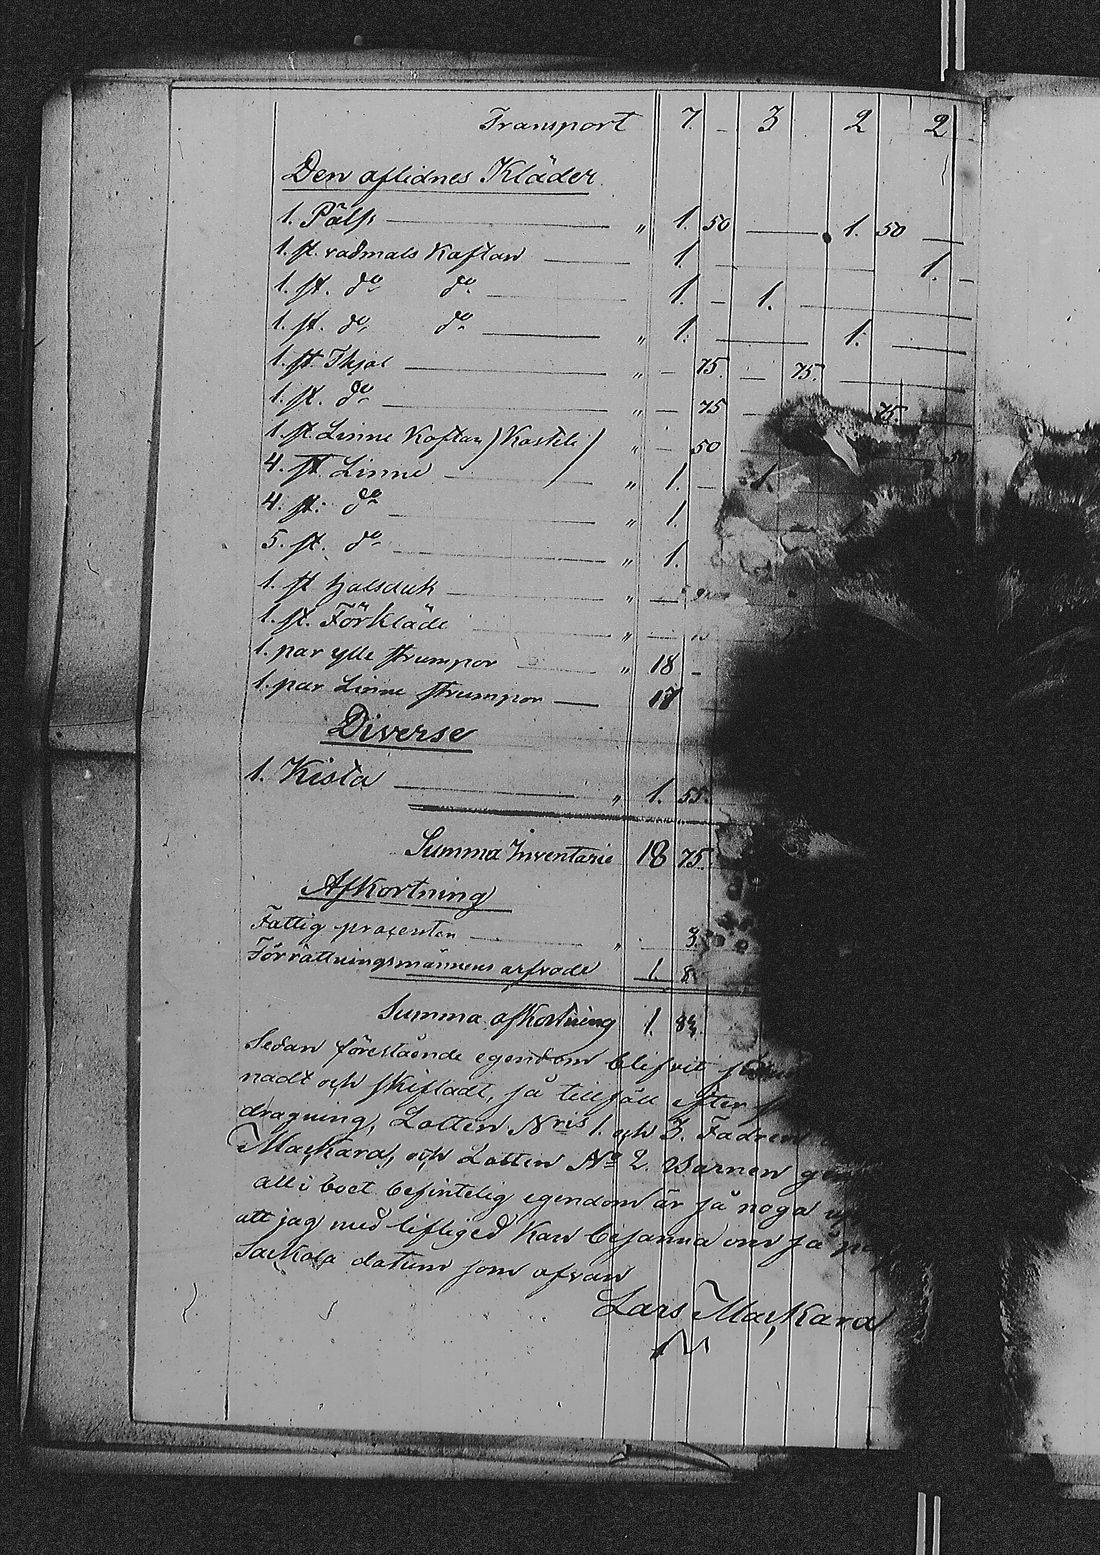 Transport 7. - 3 2 2
Den aflidnes Kläder
1. Päls " 1. 50 — 1. 50 —
1. st. vadmals Kaftan 1. — 1. -
1. st. do do 1. - 1. —
1. st. do do " 1. — 1. —
1. st. Thjol " — 75. — 75. —
1. st. do " — 75 — 75.
1. st. Linne Kaftan) Kosteli) " - 50 50
4. st. Linne " 1. - 1
4. st. do " 1.
5. st. do " 1.
1. st halsduk " —
1. st. Förkläde " —
1. par ylle strumpor " 18 -
1. par Linne strumpor — 17
Diverse
1. Kista " 1. 55.
Summa Inventarie 18 75.
Afkortning
Fattig procenten " 3
Förrättningsmännens arfvode 1. 8
Summa afkortning 1. 83.
Sedan förestående egendom blifvit
nadt och skiftadt, så tillföll efter
dragning, Lotten Nris 1. och 3. Fadren
Mackara, och Lotten No 2. Barnen
all i boet befintelig egendom är så noga
att jag med lifliged kan besanna om så
Sackola datum som ofvan
Lars Mackara